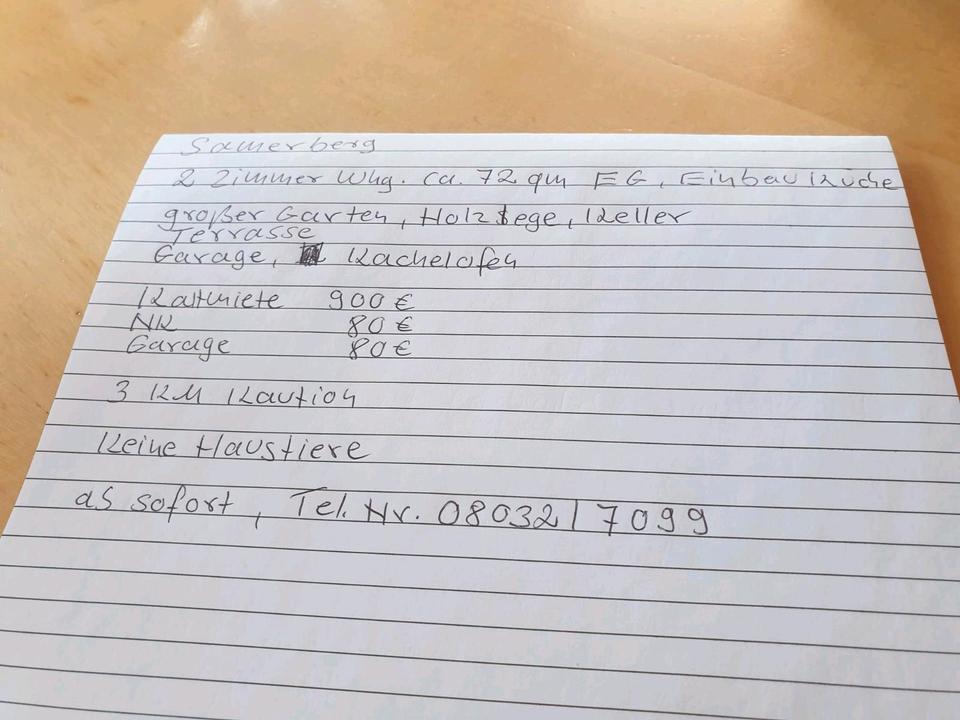 Samerberg
2 Zimmer Whg. ca. 72 qm EG, Einbau Küche
großer Garten, Holzlege, Keller
Terrasse
Garage, Kachelofen
Kaltmiete 900 €
NK 80 €
Garage 80 €
3 KM Kaution
Keine Haustiere
ab sofort, Tel. Nr. 08032/7099